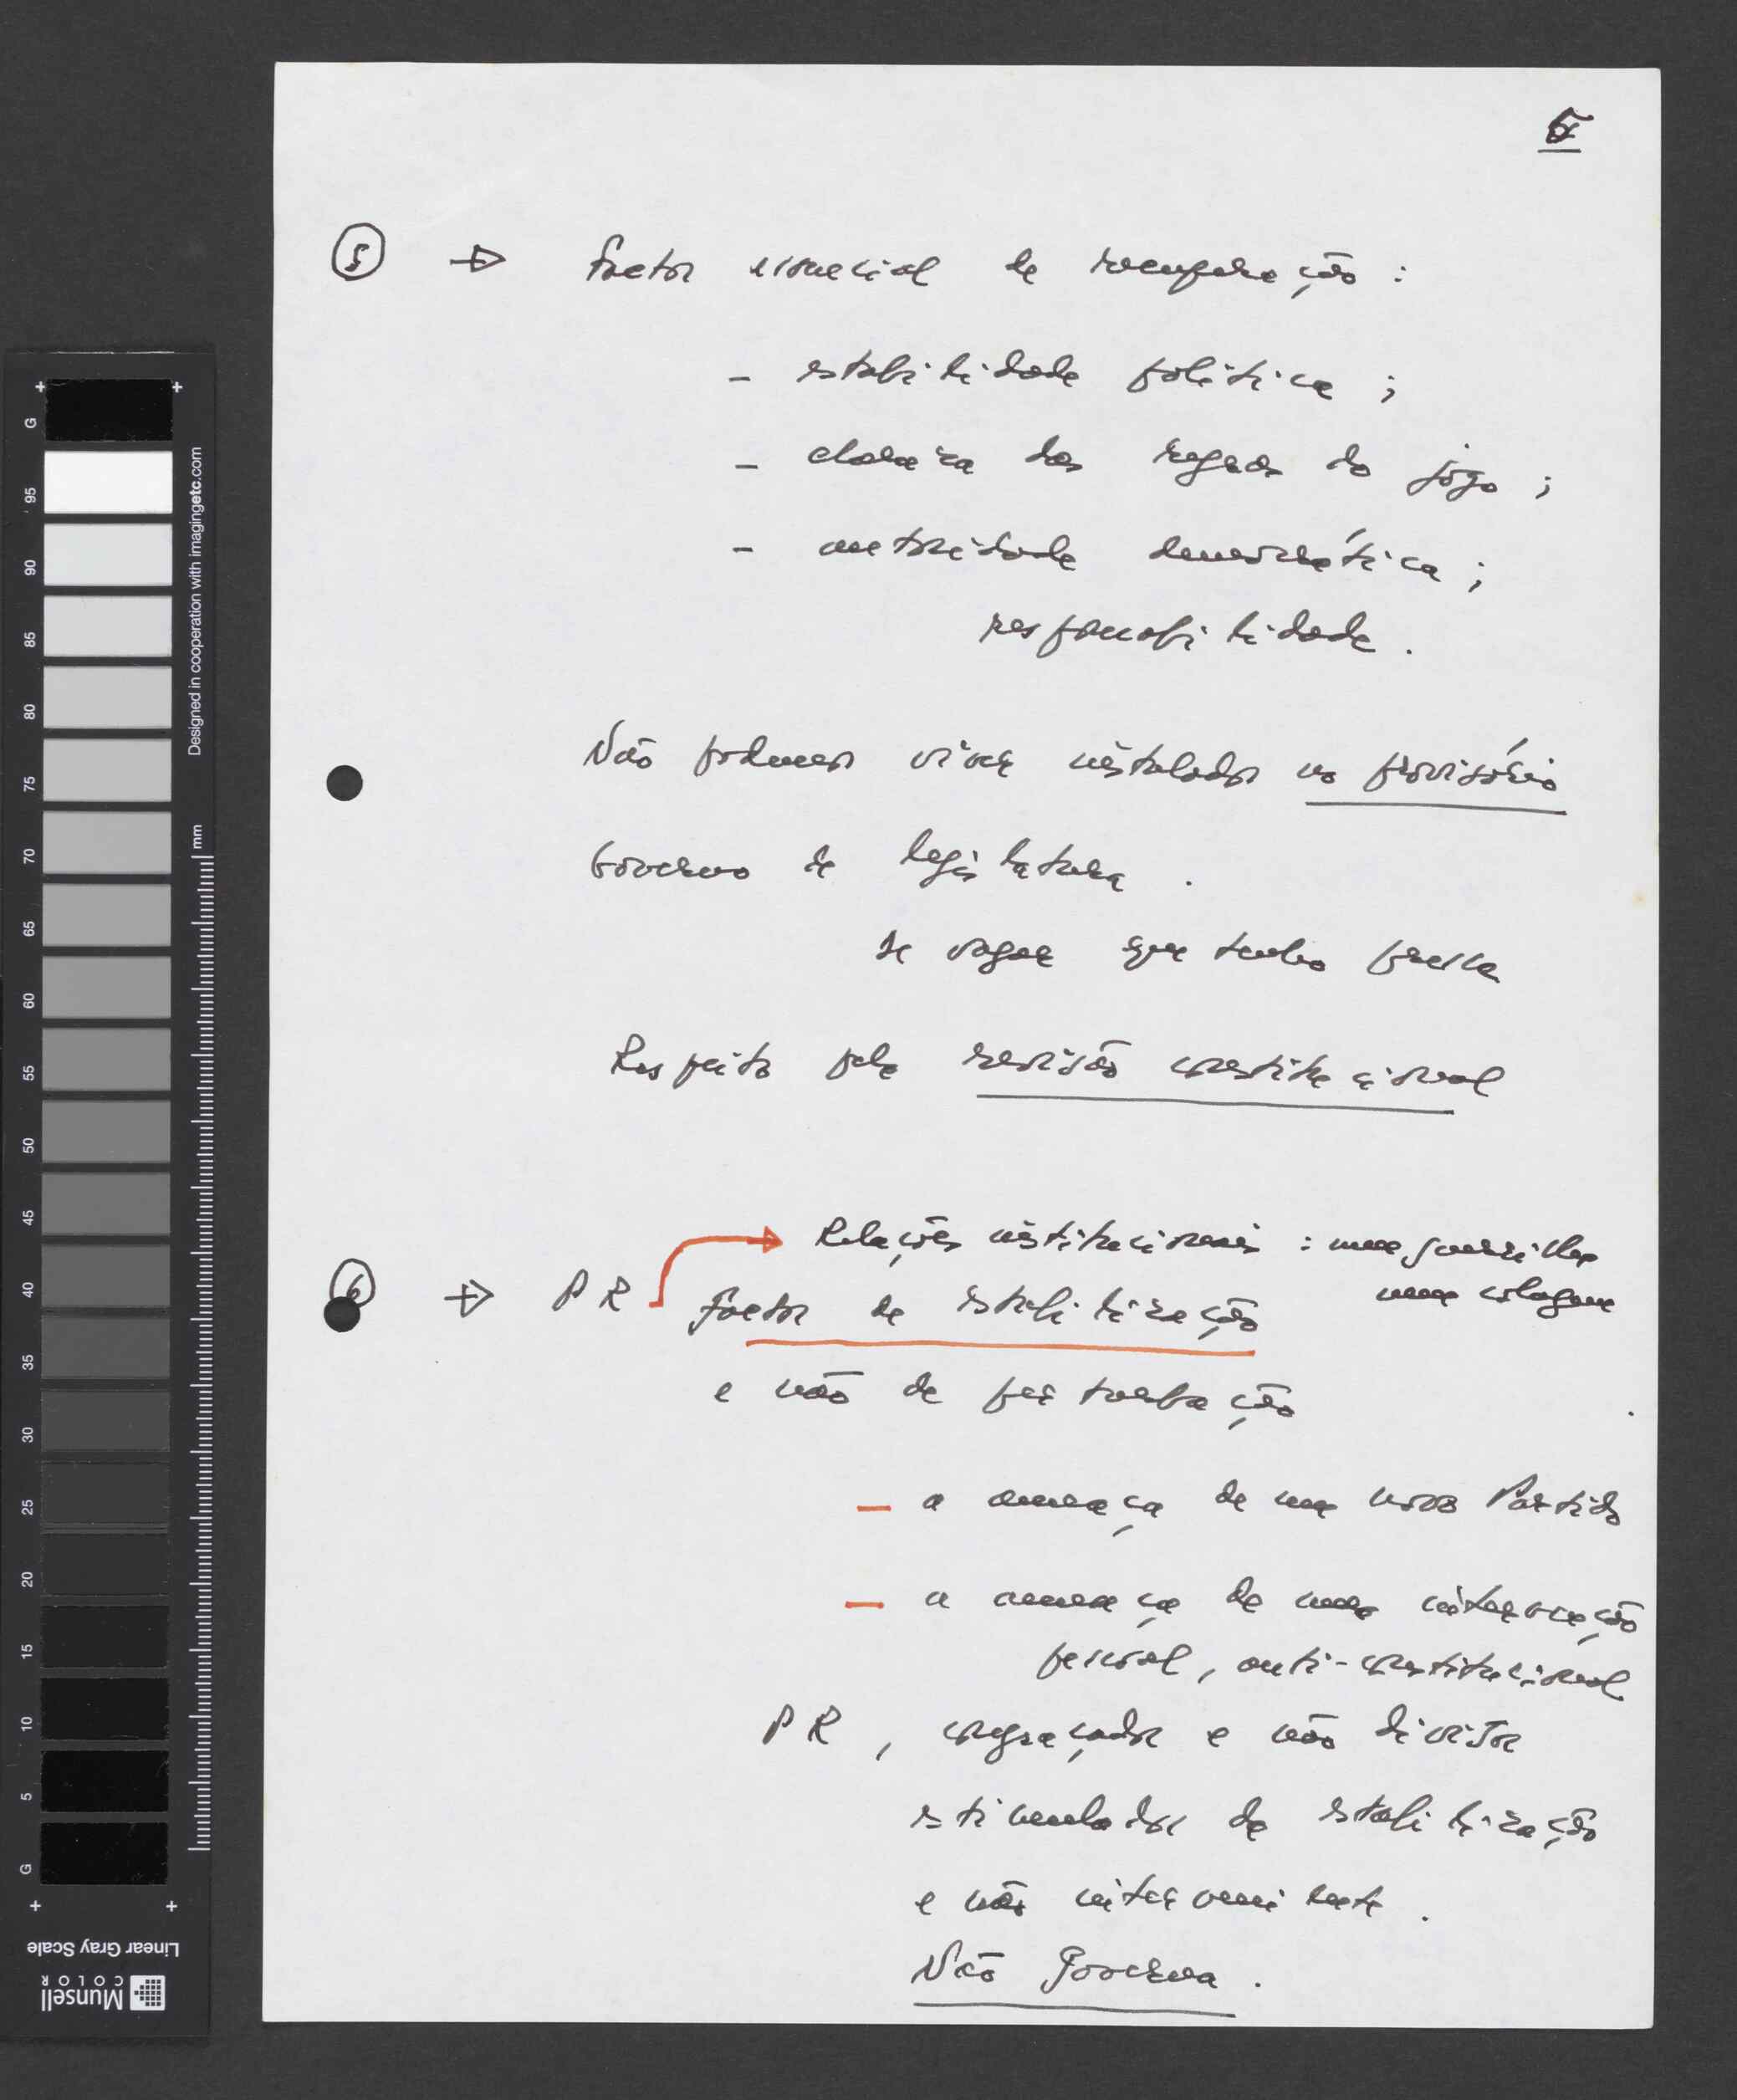 5
5 → Factor essencial de recuperação :
- estabilidade política ;
- clareza das regras do jogo ;
- autoridade democrática ;
responsabilidade .
Não podemos viver instalados no provisório
Governo de legislatura .
de vagar que tenho pressa
Respeito pela revisão constitucional
Relações institucionais : nem guerrilha
nem colagem
6 → PR factor de estabilização
e não de perturbação
- a ameaça de um novo Partido
- a ameaça de uma intervenção
pessoal, anti-constitucional
PR , congraçador e não divisor
estimulador da estabilização
e não interveniente .
Não Governa .
Designed in cooperation with imagingetc.com
mm
G 95 90 85 80 75 70 65 60 55 50 45 40 35 30 25 20 15 10 5 G
Linear Gray Scale
Munsell
COLOR